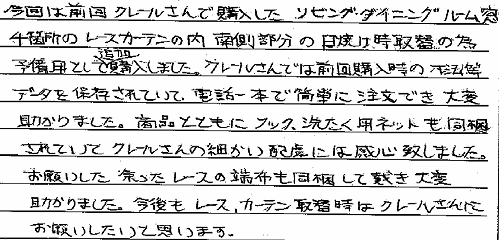 今回は前回クレールさんで購入したリビングダイニングルーム窓
4箇所のレースカーテンの内 南側部分の日焼け時取替の為
予備用として追加購入しました。クレールさんでは前回購入時の寸法等
データを保存されていて、電話一本で簡単に注文でき大変
助かりました。商品とともにフック、洗たく用ネットも同梱
されていてクレールさんの細かい配慮には感心致しました。
お願いした余ったレースの端布も同梱して戴き大変
助かりました。今後もレース、カーテン取替時はクレールさんに
お願いしたいと思います。